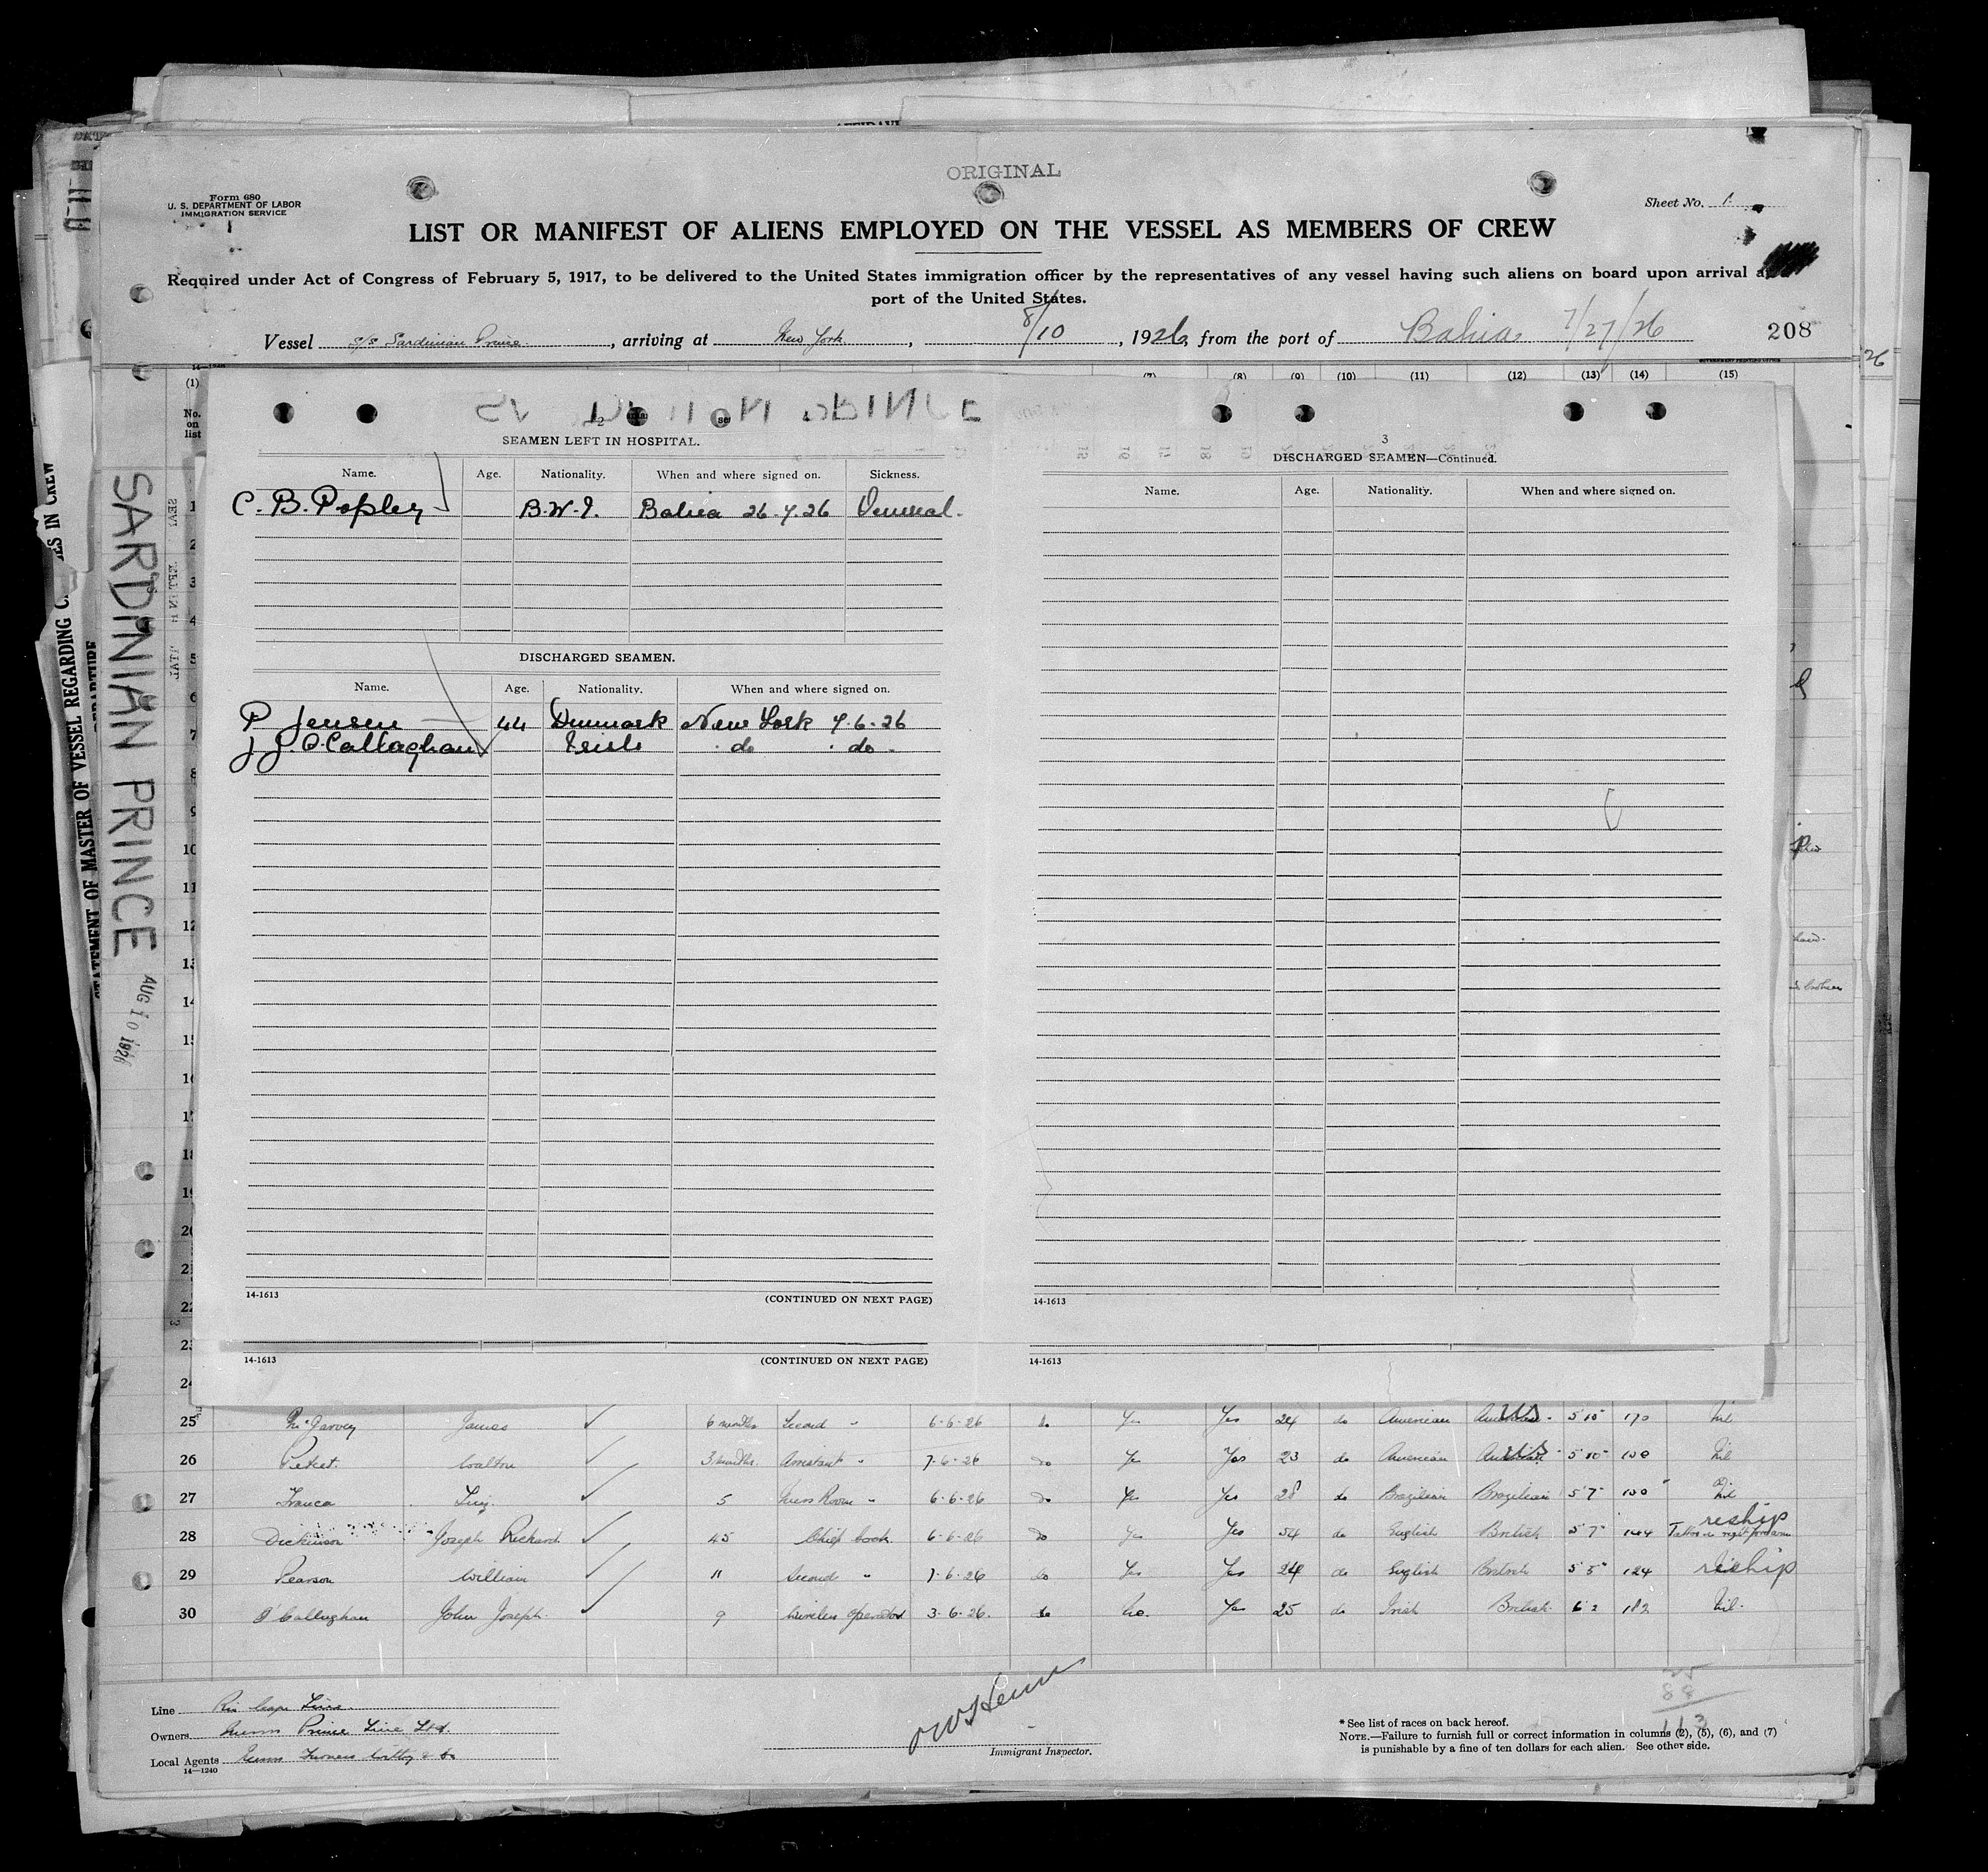 ORIGINAL
Form 680
U. S. DEPARTMENT OF LABOR
IMMIGRATION SERVICE
Sheet No. 1
LIST OR MANIFEST OF ALIENS EMPLOYED ON THE VESSEL AS MEMBERS OF CREW
Required under Act of Congress of February 5, 1917, to be delivered to the United States immigration officer by the representatives of any vessel having such aliens on board upon arrival a
port of the United States.
Vessel s/s Sardinian Prince, arriving at New York, 8/10, 1926, from the port of Bahia 7/27/26 208
26
(1) (7) (8) (9) (10) (11) (12) (13) (14) (15)
No. on list
2
SEAMEN LEFT IN HOSPITAL.
Name. Age. Nationality. When and where signed on. Sickness.
C. B. Popley B.W.I. Bahia 26.7.26 Venereal.
DISCHARGED SEAMEN.
Name. Age. Nationality. When and where signed on.
P. Jensen 44 Denmark New York 7.6.26
J J. O.Callaghan Irish do do
14-1613 (CONTINUED ON NEXT PAGE)
3
DISCHARGED SEAMEN—Continued.
Name. Age. Nationality. When and where signed on.
14-1613
14-1613 (CONTINUED ON NEXT PAGE)
14-1613
STATEMENT OF MASTER OF VESSEL REGARDING C
ES IN CREW
DEPARTURE
SARDINIAN PRINCE
AUG 10 1926
1
2
3
4
5
6
7
8
9
10
11
12
13
14
15
16
17
18
19
20
21
22
23
24
25 McGarvey James 6 months Second " 6-6-26 do Yes Yes 24 do American U.S. 5 10 170 Nil
26 Walton 3 months Assistant " 7-6-26 do Yes Yes 23 do American U.S. 5 10 Nil
27 Franca Luiz 5 Mess Room " 6-6-26 do Yes Yes 28 do Brazilian Brazilian 5 7 Nil
28 Dickinson Joseph Richard 45 Chief Cook 6-6-26 do Yes Yes 54 do English British 5 7 144 Tattoo on right forearm reship
29 Pearson William 11 Second " 7-6-26 do Yes Yes 24 do English British 5 5 124 reship
30 O'Callaghan John Joseph 9 Wireless operator 3-6-26 do No Yes 25 do Irish British 6 2 182 Nil
Line Rio Cape Line
Owners Messrs Prince Line Ltd.
Local Agents Messrs Furness Withy & Co
14—1240
Immigrant Inspector.
25
88
113
* See list of races on back hereof.
NOTE.—Failure to furnish full or correct information in columns (2), (5), (6), and (7)
is punishable by a fine of ten dollars for each alien. See other side.